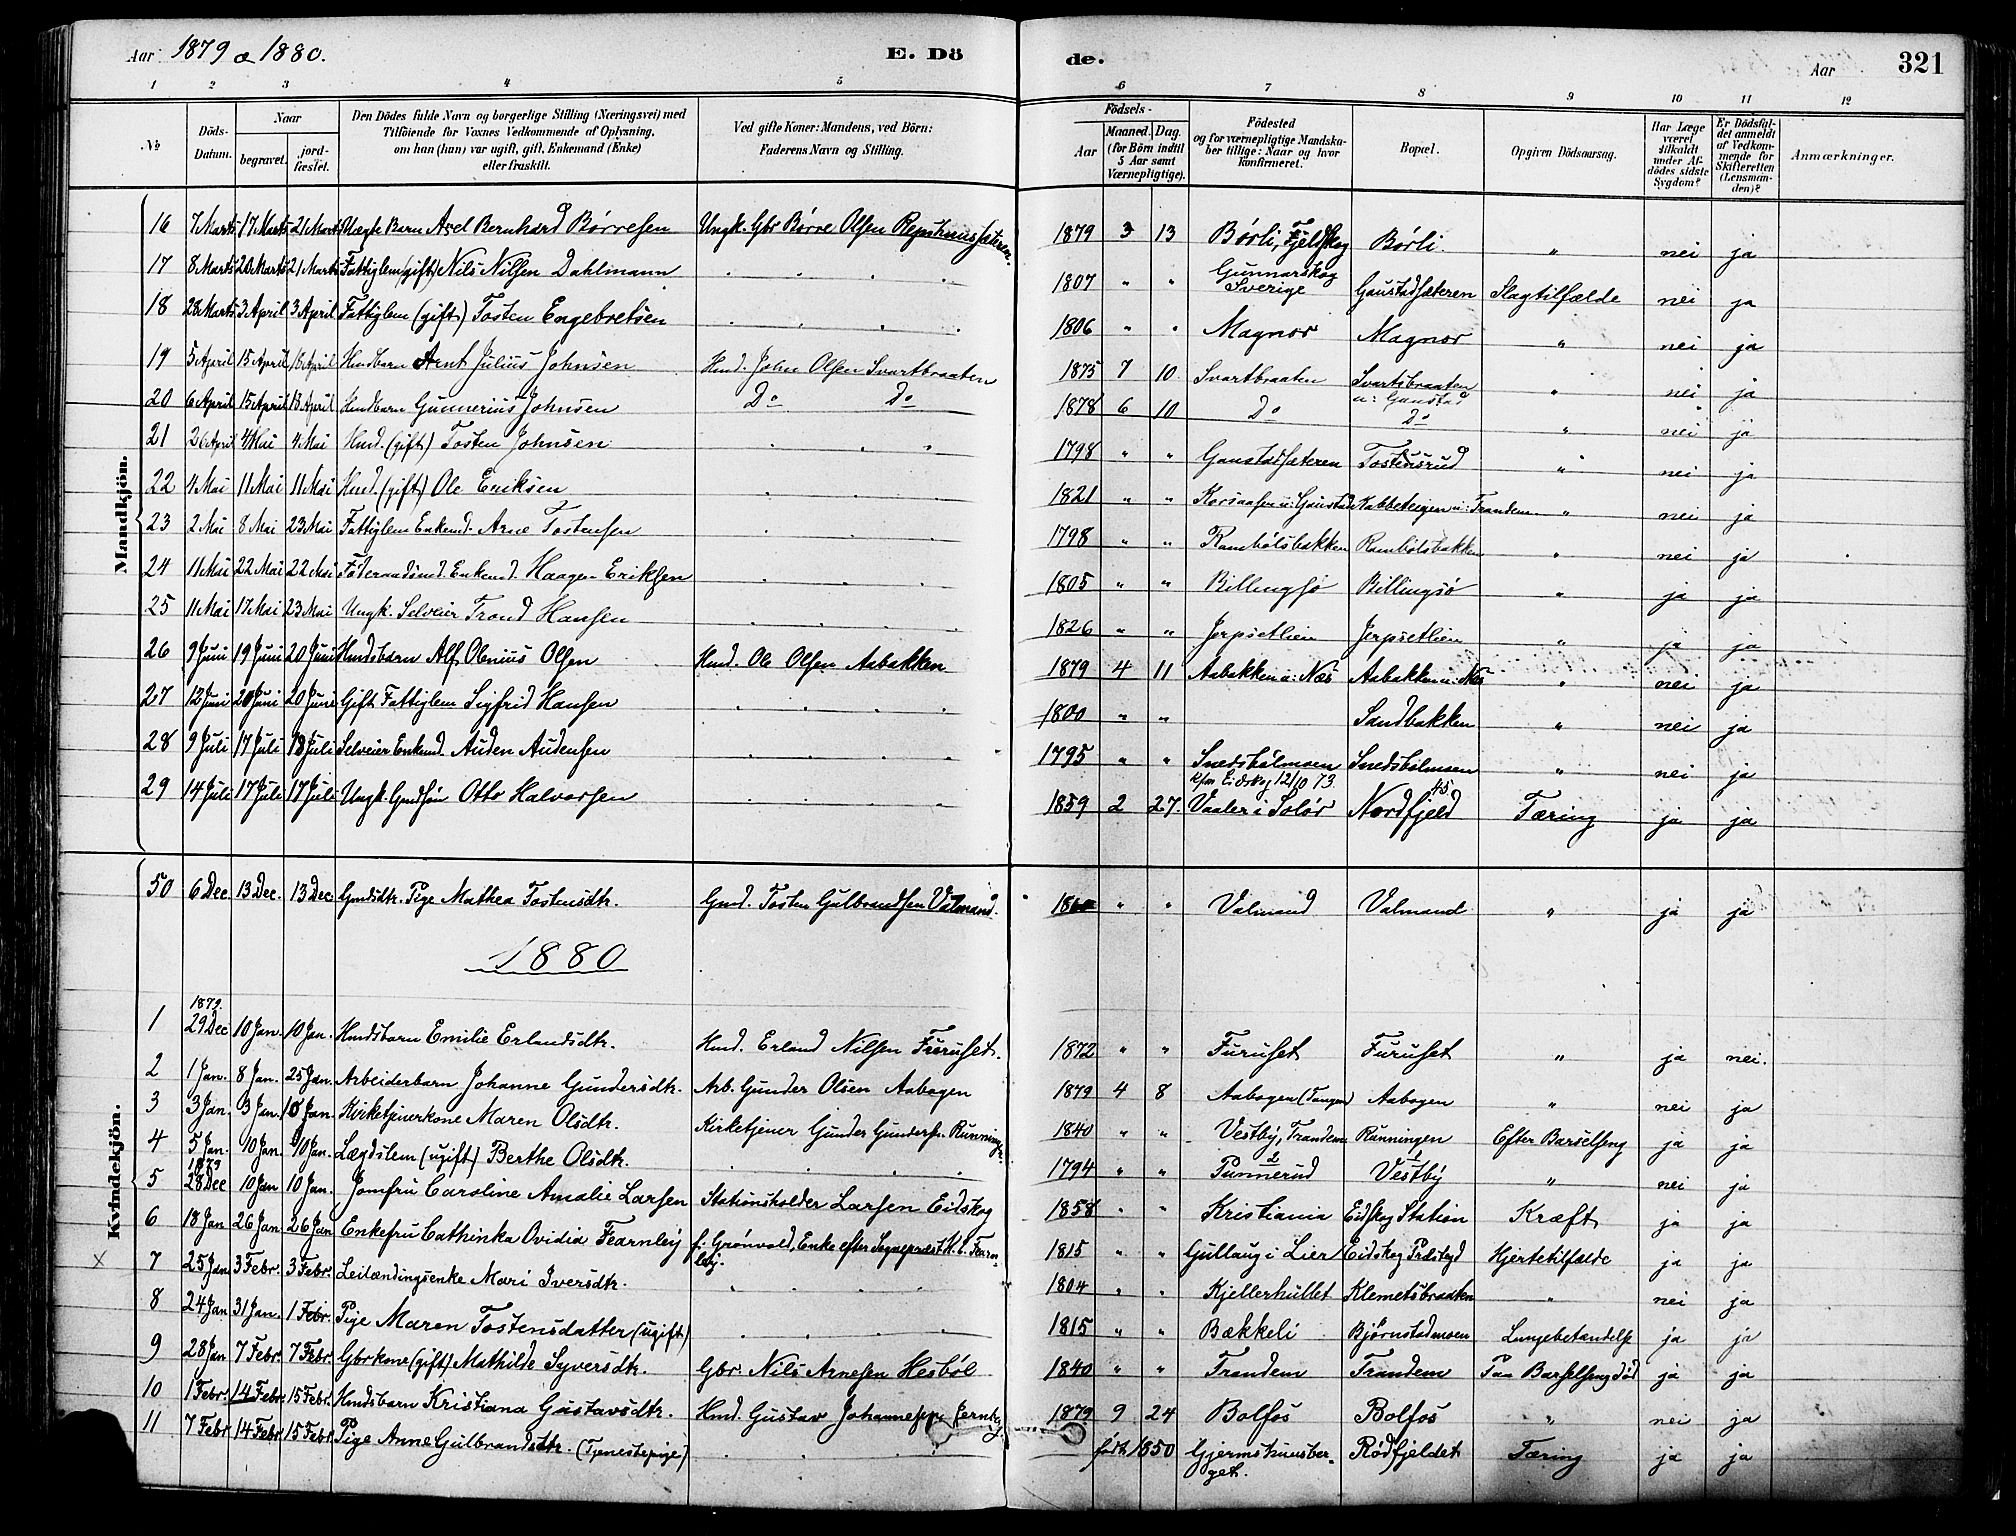 Aar 1879 & 1880. E. Dö de. Aar 321
1 2 3 4 5 6 7 8 9 10 11 12
No Döds-Datum. Naar begravet. jordfæstet. Den Dödes fulde Navn og borgerlige Stilling (Næringsvei) med Tilföiende for Voxnes Vedkommende af Oplysning, om han (hun) var ugift, gift, Enkemand (Enke) eller fraskilt. Ved gifte Koner: Mandens, ved Börn: Faderens Navn og Stilling. Födsels- Aar Maaned. Dag. (for Börn indtil 5 Aar samt Værnepligtige). Födested og for værnepligtige Mandskaber tillige: Naar og hvor Konfirmeret. Bopæl. Opgiven Dödsaarsag. Har Læge været tilkaldt under Afdödes sidste Sygdom? Er Dödsfaldet anmeldt af Vedkommende for Skifteretten (Lensmanden)? Anmærkninger.
Mandkjön.
16 7 Marts 17 Marts 21 Marts Uægte Barn Axel Bernhard Børresen Ungk. Gbr Børre Olsen 1879 3 13 Børli, Fjeldskog Børli " nei ja
17 8 Marts 20 Marts 21 Marts Fattiglem (gift) Nils Nilsen Dahlmann 1807 " " Gunnarskog Sverige Gaustadsæteren Slagtilfælde nei ja
18 28 Marts 3 April 3 April Fattiglem (gift) Tosten Engebretsen 1806 " " Magnor Magnor " nei ja
19 5 April 15 April 18 April Hmdbarn Arnt Julius Johnsen Hmd. John Olsen Svartbraaten 1875 7 10 Svartbraaten Svartsbraaten u: Gaustad " nei ja
20 6 April 15 April 18 April Hmdbarn Gunnerius Johnsen Do Do 1878 6 10 Do Do " nei ja
21 26 April 4 Mai 4 Mai Hmd. (gift) Tosten Johnsen 1798 " " Gaustadsæteren Tostensrud " nei ja
22 4 Mai 11 Mai 11 Mai Hmd. (gift) Ole Eriksen 1821 " " Korsaasen u: Gaustad Kabbeteigen u: Trandem " nei ja
23 2 Mai 8 Mai 23 Mai Fattiglem Enkemd. Arne Tostensen 1798 " " Rambølsbakken Rambølsbakken " nei ja
24 11 Mai 22 Mai 22 Mai Føderaadsmd. Enkemd. Haagen Eriksen 1805 " " Billingsø Billingsø " ja ja
25 11 Mai 17 Mai 23 Mai Ungk. Selveier Trond Hansen 1826 " " Jerpsetlien Jerpsetlien " ja ja
26 9 Juni 19 Juni 20 Juni Hmdsbarn Alf Olenius Olsen Hmd. Ole Olsen Aabakken 1879 4 11 Aabakken u: Næs Aabakken u: Næs " nei ja
27 12 Juni 20 Juni 20 Juni Gift Fattiglem Sigfrid Hansen 1800 " " Sandbakken " nei ja
28 9 Juli 17 Juli 18 Juli Selveier Enkemd. Auden Audensen 1795 " " Snedsbølmoen Snedsbølmoen " nei ja
29 14 Juli 17 Juli 17 Juli Ungk. Gmdsøn Otto Halvorsen 1859 2 27. kfm Eidskog 12/10 73 Vaaler i Solør Nordfjeld Tæring ja ja
Kvindekjön.
50 6 Dec. 13 Dec. 13 Dec. Gmdsdtr. Pige Mathea Tostensdtr. Gmd. Tosten Gulbrandsen Valmand. " " Valmand Valmand " ja ja
1880
1 1879. 29 Dec 10 Jan. 10 Jan. Hmdsbarn Emilie Erlandsdtr. Hmd. Erland Nilsen Furuset. 1872 " " Furuset Furuset " ja nei.
2 1 Jan. 8 Jan. 25 Jan. Arbeiderbarn Johanne Gundersdtr. Arb. Gunder Olsen Aabogen 1879 4 8 Aabogen (Tangen) Aabogen " nei ja
3 3 Jan. 9 Jan. 10 Jan. Kirketjenerkone Maren Olsdtr. Kirketjener Gunder Gunders. Runningen 1840 " " Vestby, Trandem Runningen Efter Barselseng ja ja
4 5 Jan. 10 Jan. 10 Jan. Lægdslem (ugift) Berthe Olsdtr. 1794 " " Punnerud Vestby " nei ja
5 1879 28 Dec 10 Jan 10 Jan. Jomfru Caroline Amalie Larsen Stationsholder Larsen Eidskog 1858 " " Kristiania Eidskog Station Kræft ja ja
6 18 Jan 26 Jan 26 Jan Enkefru Cathinka Ovidia Fearnley f. Grønvold, Enke efter Sognepræst Fearnley. 1815 " " Gullaug i Lier Eidskog Præstegd Hjertetilfælde ja ja
x 7 25 Jan 3 Febr. 3 Febr. Leilændingsenke Mari Iversdtr. 1804 " " Kjellerhullet Klemetsbraaten " nei ja
8 24 Jan 31 Jan. 1 Febr. Pige Maren Tostensdatter (ugift) 1815 " " Bækkeli Bjørnstadmoen Lungebetændelse ja ja
9 28 Jan 7 Febr 7 Febr. Gbrkone (gift) Mathilde Syversdtr. Gbr. Nils Arnesen Hesbøl 1840 " " Trandem Trandem Paa Barselseng død ja ja
10 1 Febr. 14 Febr. 15 Febr. Hmdsbarn Kristiana Gustavsdtr. Hmd. Gustav 1879 9 24 Bolfos Bolfos " nei ja
11 7 Febr 14 Febr 15 Febr. Pige Anne Gulbrandsdtr. (Tjenestepige) født 1850 Gjermshuusberget. Rødfjeldet Tæring ja ja